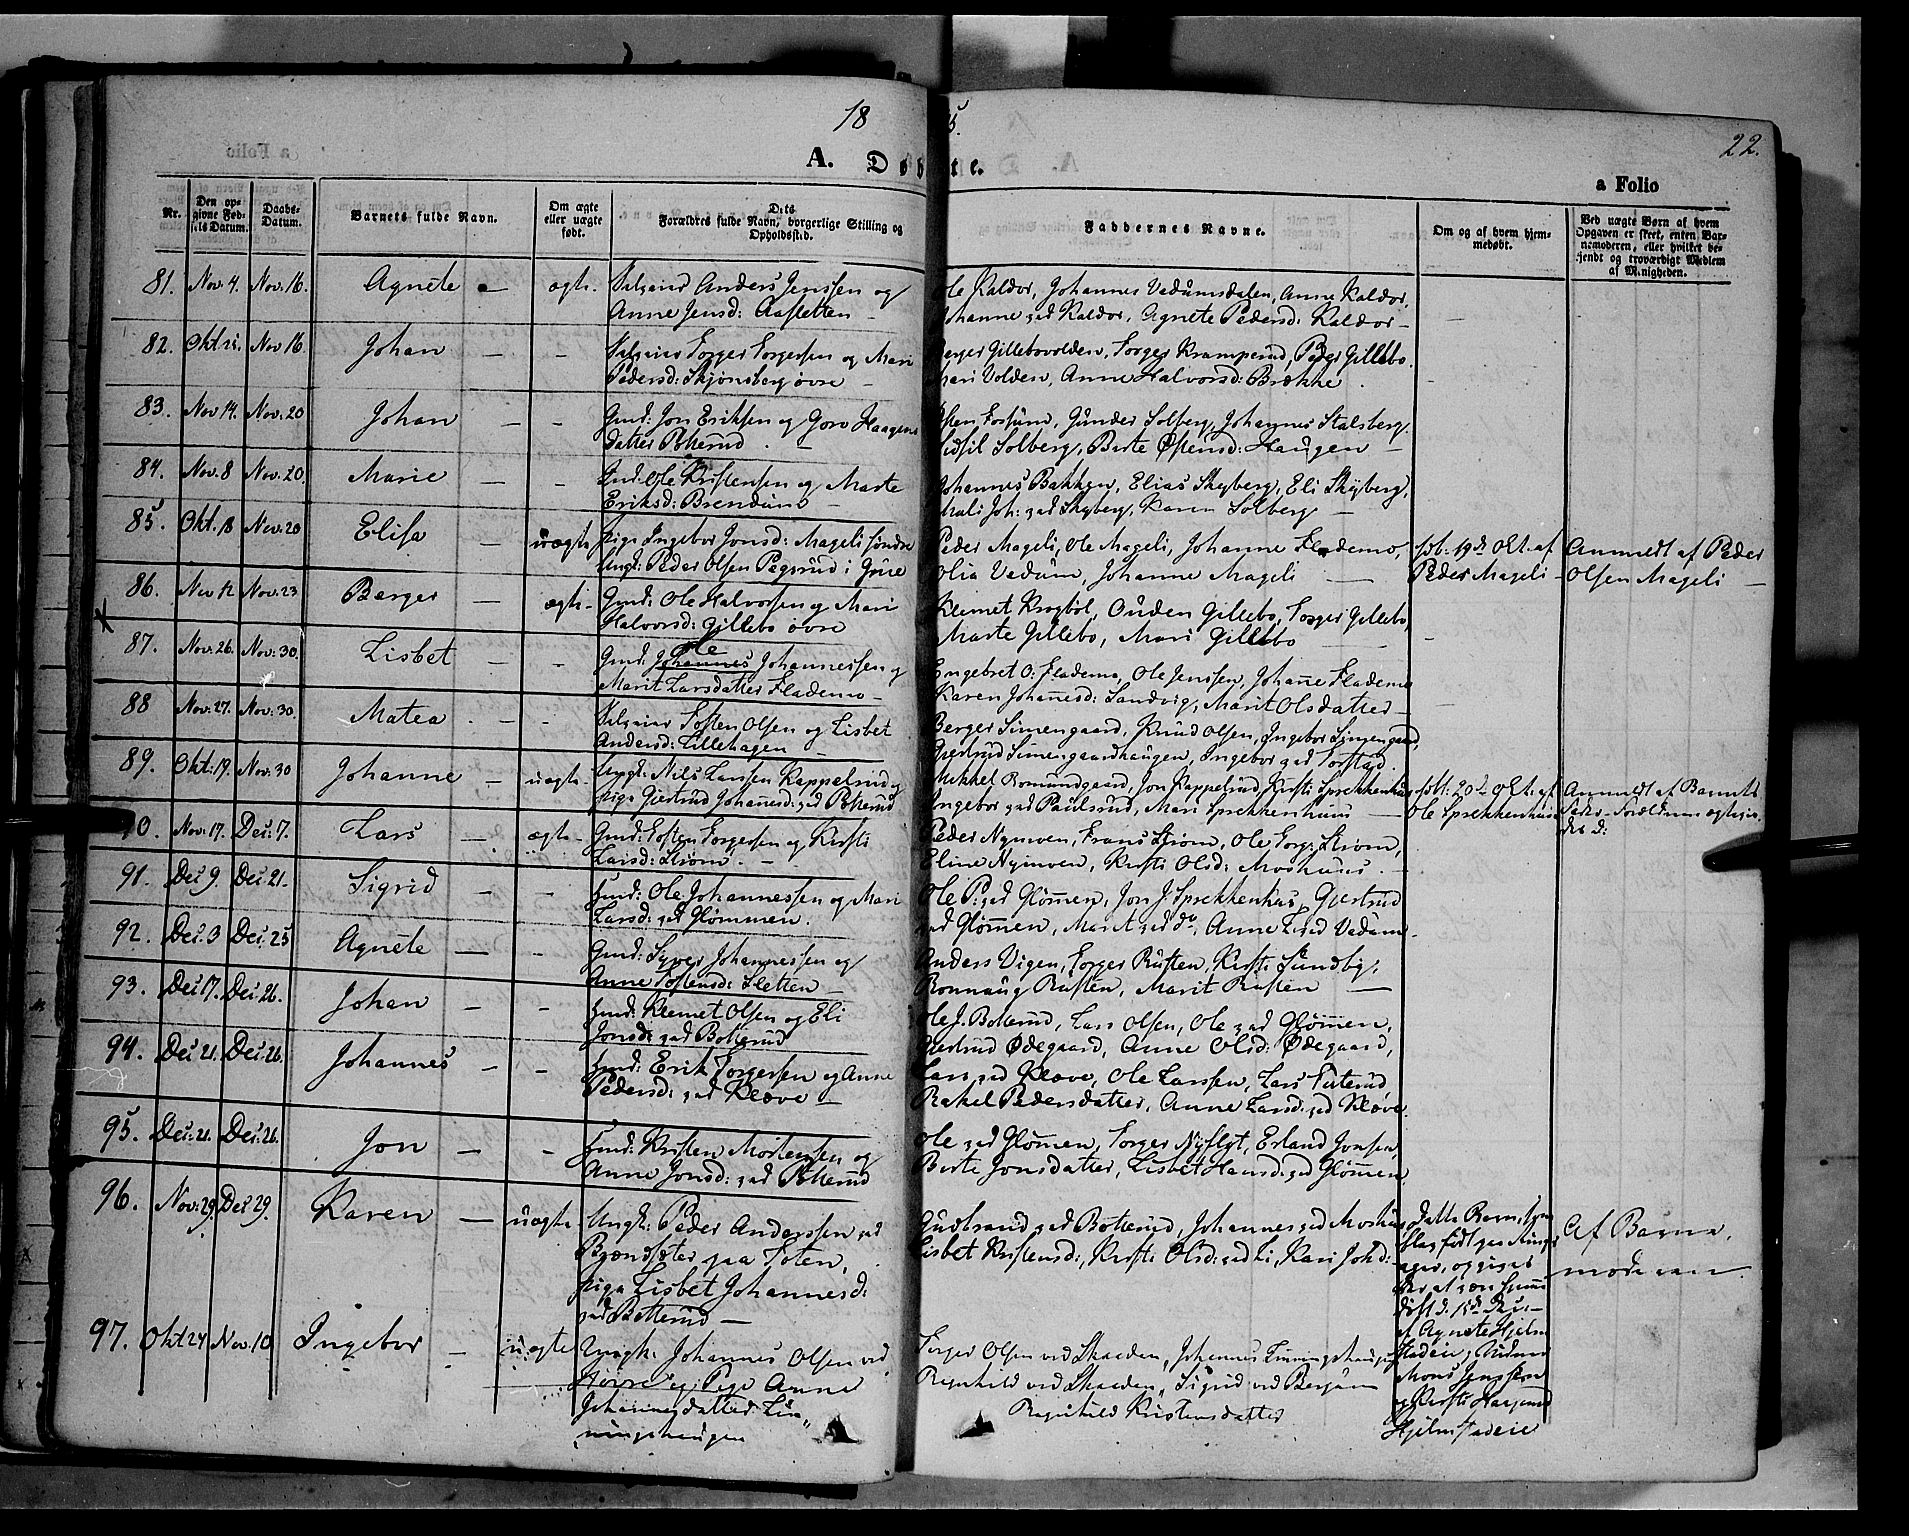 18
5.
22.
A. Døbte.
a Folio
Nr.
Den op-
givne Fød-
sels Datum.
Daabs-
Datum.
Barnets fulde Navn.
Om ægte
eller uægte
født.
Dets
Forældres fulde Navn, borgerlige Stilling og
Opholdssted.
Faddernes Navne.
Om og af hvem hjem-
medøbt.
Ved uægte Børn af hvem
Opgaven er skeet, enten Bar-
nemoderen, eller hvilket be-
kjendt og troværdigt Medlem
af Menigheden.
81. Nov. 4. Nov. 16. Agnete — ægte. Selveier Anders Jenssen og
Anne Jensd: Aasletten —
Ole Kaldor, Johannes Vadumsdalen, Anne Kaldor,
Johanne ved Kaldor, Agnete Pedersd: Kaldor —
82. Nov 16. Johan — — Selveier Torger Torgersen og Mari
Pedersd: Skjønsberg øvre —
Berger Gillebovolden, Torger Kramperud, Peder Gillebo
Mari Volden, Anne Halvorsd: Brække
83. Nov 14. Nov. 20 Johan — — Gmd: Jon Eriksen og Goro Haagens
datter Potterud.
Gunder Solberg, Johannes Stalsberg.
Sidsil Solberg, Berte Østensd: Haugen —
84. Nov. 8 Nov. 20. Marie — — Ind: Ole Kristensen og Marte
Eriksd: —
Johannes Bakken, Elias Skyberg, Eli Skyberg,
Mali Joh: ved Skyberg, Karen Solberg —
85. Okt. 18 Nov. 20 Elisa — uægte Pige Ingebor Jonsd: Mageli søndre
Ungk: Peder Olsen Pegsrud i Grue
Peder Mageli, Ole Mageli, Johanne Flademo,
Olia Vadum, Johanne Mageli —
døbt. 19d Okt. af
Peder Mageli —
Anmeldt af Peder
Olsen Mageli —
86. Nov 12 Nov. 23 Berger — ægte Gmd: Ole Halvorsen og Mari
Halvorsd: Gillebo øvre
Klemet Krogbøl, Ouden Gillebo, Torger Gillebo,
Marte Gillebo, Mari Gillebo —
87. Nov: 26. Nov: 30. Lisbet — — Gmd: Johannes Ole Johannessen og
Marit Larsdatter Flademo —
Engebret O: Flademo, Ole Jenssen, Johanne Flademo
Karen Johannesd: Sandvig, Marit Olsdatter —
88 Nov: 27. Nov: 30. Matea — — Selveier Tosten Olsen og Lisbet
Andersd: Lillehagen —
Berger Simengaard, Knud Olsen, Ingebor Simengaard,
Gjertrud Simengaardhaugen, Ingebor ved Torstad.
89. Okt: 19. Nov: 30 Johanne — uægte Ungk: Nils Larssen Kappelrud og
Pige Gjertrud Johannesd: ved Potterud
Mikkel Romundgaard, Jon Kappelrud, Kirsti Sprekkenhus
Ingebor ved Paulsrud, Mari Sprekkenhuus —
døbt. 20d Okt. af
Ole Sprekkenhus
Anmeldt af Barnets
Fader —
90. Nov. 17. Dec: 7. Lars — ægte Gmd: Tosten Torgersen og Kirsti
Larsd: Strøm. —
Peder Nymoen, Frans Strøm, Ole Torg: Strøm,
Eline Nymoen, Kirsti Olsd: Moshuus —
91. Dec 9. Dec: 21. Sigrid — — Gmd: Ole Johannessen og Mari
Larsd: ved Glommen.
Ole P: ved Glommen, Jon J: Sprekkenhus, Gjertrud
ved Glommen, Marit ved do, Anne ved Vadum
92. Dec: 3 Dec: 25 Agnete — — Gmd: Syver Johannessen og
Anne Tostensd: Sletten —
Anders Vigen, Torger Rusten, Kirsti Sundby,
Ronnaug Rusten, Marit Rusten —
93. Dec: 17. Dec: 26. Johan — — Gmd: Klemet Olsen og Eli
Jonsd: ved Botterud
Ole J. Botterud, Lars Olsen, Ole ved Glommen,
Gjertrud Ødegaard, Anne Olsd: Ødegaard,
94. Dec: 21. Dec: 26. Johannes — — Gmd: Erik Torgersen og Anne
Pedersd: ved Kløve —
Lars ved Kløve, Ole Larssen, Lars
Rakel Pedersdatter, Anne Larsd: ved Kløve.
95. Dec: 21. Dec: 26. Jon — — Gmd: Kristen Mortensen og
Anne Jonsd: ved Potterud
Ole ved Glommen, Torger Nyflyt, Erland Jonsen,
Berte Jonsdatter, Lisbet Hansd: ved Glommen.
96. Nov: 29. Dec 29. Karen — uægte Ungk: Peder Anderssen ved
paa Toten,
Pige Lisbet Johannesd:
ved Botterud —
Gudbrand ved Botterud, Johannes ved Moshus
Lisbet Kristensd:, Kirsti Olsd: ved Li, Kari Johd:
Dette Barn,
født paa
ager, og
af Agnete Hjelm
stadeie,
Mons Jenssen
og Kirsti
Hjelmstadeie
Af Barne-
moderen.
97. Okt 24 Nov. 10 Ingebor — uægte Ungk: Johannes Olsen ved
og Pige Anne
Johannesdatter Lin-
ningshaugen
Torger Olsen ved Skaaden, Johannes Linningshaugen
Ragnhild ved Skaaden, Sigrid ved Bergum
Ragnhild Kristensdatter